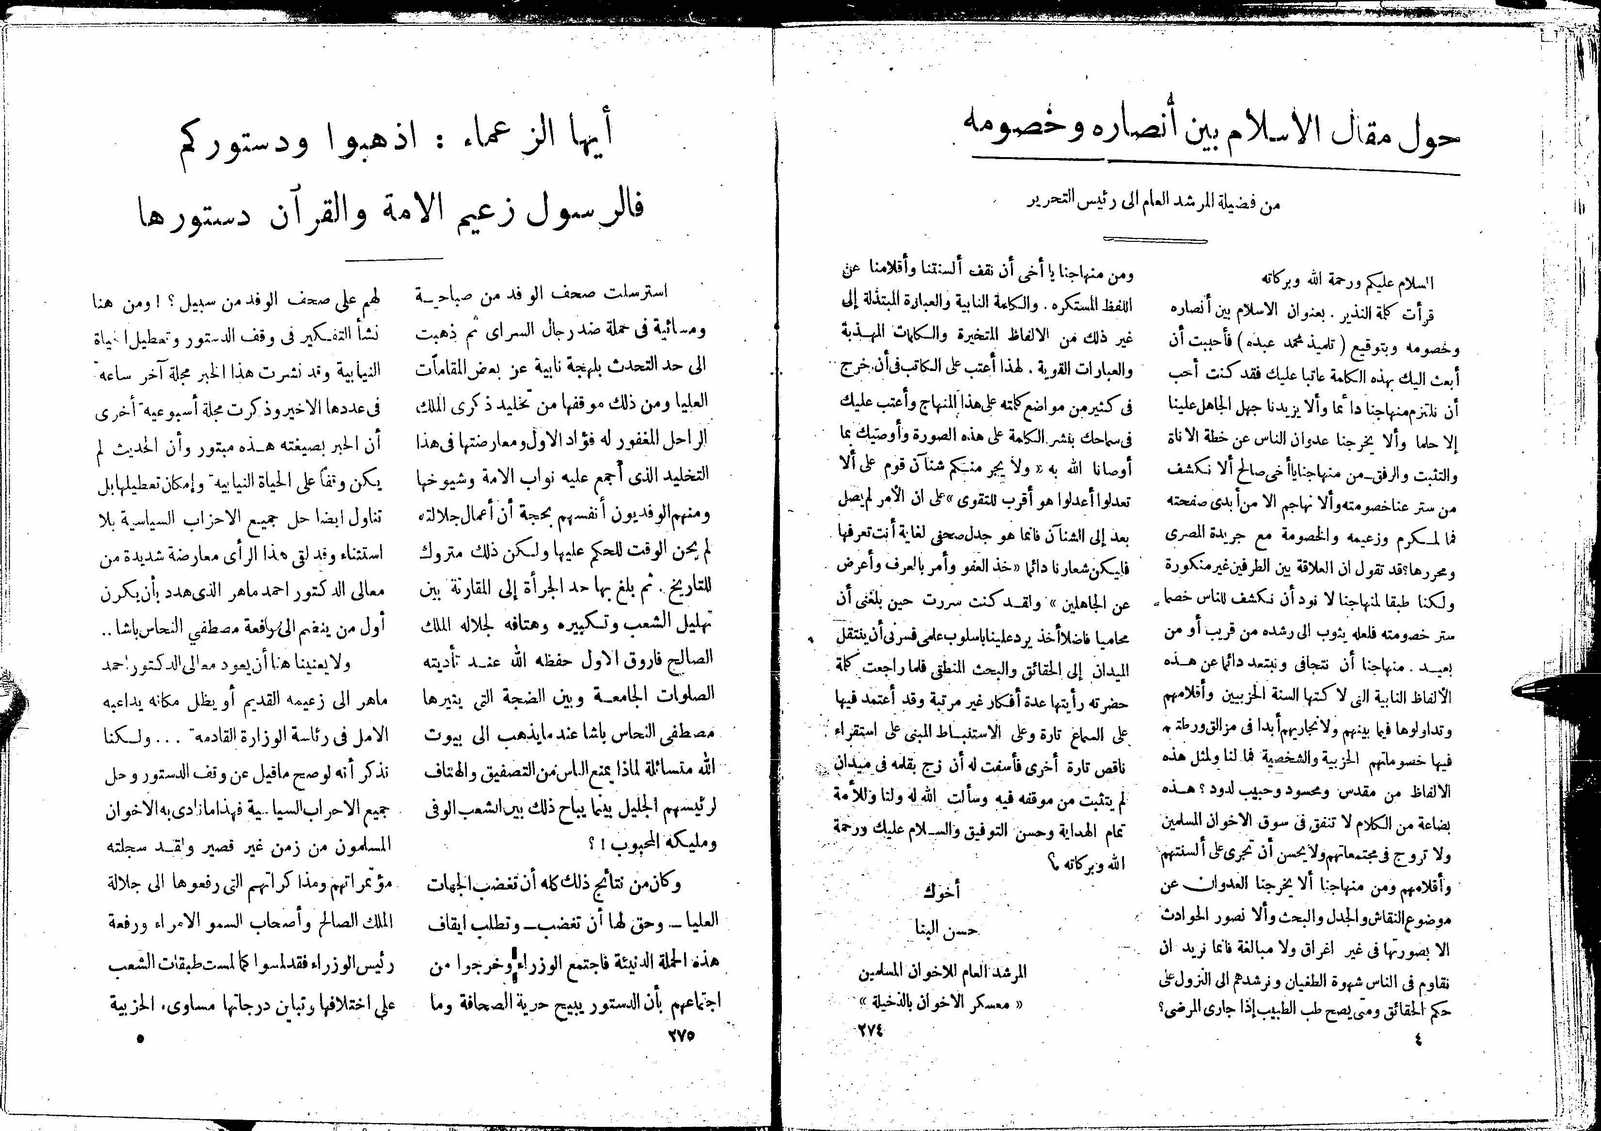 حول مقال الاسلام بين أنصاره وخصومه
من فضيلة المرشد العام الى رئيس التحرير
السلام عليكم ورحمة الله وبركاته
قرأت كلمة النذير . بعنوان الاسلام بين أنصاره
وخصومه وبتوقيع ( تلميذ محمد عبده ) فأحببت أن
أبعث اليك بهذه الكلمة عاتبا عليك فقد كنت أحب
أن نلتزم منهاجنا دائما وألا يزيدنا جهل الجاهل علينا
إلا حلما وألا يخرجنا عدوان الناس عن خطة الاناة
والتثبت والرفق ـ من منهاجنا يا أخى صالح ألا نكشف
من ستر عنا خصومته وألا نهاجم الا من أبدى صفحته
فما لمكرم وزعيمه والخصومة مع جريدة المصرى
ومحررها ؟ قد تقول ان العلاقة بين الطرفين غير منكورة
ولكنا طبقا لمنهاجنا لا نود أن نكشف للناس خصما
ستر خصومته فلعله يثوب الى رشده من قريب أو من
بعيد . منهاجنا أن نتجافى ونبتعد دائما عن هذه
الألفاظ النابية التى لاكتها السنة الحزبيين وأقلامهم
وتداولوها فيما بينهم ولا نجاريهم أبدا فى مزالق ورطتهم
فيها خصوماتهم الحزبية والشخصية فما لنا ولمثل هذه
الالفاظ من مقدس ومحسود وحبيب لدود ؟ هذه
بضاعة من الكلام لا تنفق فى سوق الاخوان المسلمين
ولا تروج فى مجتمعاتهم ولا يحسن أن تجرى على ألسنتهم
وأقلامهم ومن منهاجنا ألا يخرجنا العدوان عن
موضوع النقاش والجدل والبحث وألا نصور الحوادث
الا بصورتها فى غير اغراق ولا مبالغة فانما نريد ان
نقاوم فى الناس شهوة الطغيان ونرشدهم الى النزول على
حكم الحقائق ومتى يصح طب الطبيب إذا جارى المرضى ؟
٤
ومن منهاجنا يا أخى أن نقف ألسنتنا وأقلامنا عن
اللفظ المستكره . والكلمة النابية والعبارة المبتذلة إلى
غير ذلك من الالفاظ المتخيرة والكلمات المهذبة
والعبارات القوية . لهذا أعتب على الكاتب فى أن خرج
فى كثير من مواضع كلمته على هذا المنهاج وأعتب عليك
فى سماحك بنشر الكلمة على هذه الصورة وأوصيك بما
أوصانا الله به « ولا يجرمنكم شنآن قوم على ألا
تعدلوا أعدلوا هو أقرب للتقوى » على ان الأمر لم يصل
بعد إلى الشنآن فانما هو جدل صحفى لغاية أنت تعرفها
فليكن شعارنا دائما « خذ العفو وأمر بالعرف وأعرض
عن الجاهلين » ولقد كنت سررت حين بلغنى أن
محاميا فاضلا أخذ يرد علينا باسلوب علمى فسرنى أن ينتقل
الميدان إلى الحقائق والبحث المنطقى فلما راجعت كلمة
حضرته رأيتها عدة أفكار غير مرتبة وقد أعتمد فيها
على السماع تارة وعلى الاستنباط المبنى على استقراء
ناقص تارة أخرى فأسفت له أن زج بقلمه فى ميدان
لم يتثبت من موقفه فيه وسألت الله له ولنا وللأمة
تمام الهداية وحسن التوفيق والسلام عليك ورحمة
الله وبركاته ؟
أخوك
حسن البنا
المرشد العام للاخوان المسلمين
« معسكر الاخوان بالدخيلة »
٢٧٤
أيها الزعماء : اذهبوا ودستوركم
فالرسول زعيم الامة والقرآن دستورها
استرسلت صحف الوفد من صباحية
ومسائية فى حملة ضد رجال السراى ثم ذهبت
الى حد التحدث بلهجة نابية عن بعض المقامات
العليا ومن ذلك موقفها من تخليد ذكرى الملك
الراحل المغفور له فؤاد الاول ومعارضتها فى هذا
التخليد الذى أجمع عليه نواب الامة وشيوخها
ومنهم الوفديون أنفسهم بحجة أن أعمال جلالته
لم يحن الوقت للحكم عليها ولكن ذلك متروك
للتاريخ . ثم بلغ بها حد الجرأة إلى المقارنة بين
تهليل الشعب وتكبيره وهتافه لجلاله الملك
الصالح فاروق الاول حفظه الله عند تأديته
الصلوات الجامعة وبين الضجة التى يثيرها
مصطفى النحاس باشا عند ما يذهب الى بيوت
الله متسائلة لماذا يمنع الناس من التصفيق والهتاف
لرئيسهم الجليل بينما يباح ذلك بين الشعب الوفى
ومليكه المحبوب ! ؟
وكان من نتائج ذلك كله أن تغضب الجهات
العليا ـ وحق لها أن تغضب ـ وتطلب ايقاف
هذه الحملة الدنيئة فاجتمع الوزراء وخرجوا من
اجتماعهم بأن الدستور يبيح حرية الصحافة وما
٢٧٥
لهم على صحف الوفد من سبيل ؟ ! ومن هنا
نشأ التفكير فى وقف الدستور وتعطيل الحياة
النيابية وقد نشرت هذا الخبر مجلة آخر ساعه
فى عددها الاخير وذكرت مجلة أسبوعيه أخرى
أن الخبر بصيغته هذه مبتور وأن الحديث لم
يكن وقفا على الحياة النيابيه وإمكان تعطيلها بل
تناول ايضا حل جميع الاحزاب السياسية بلا
استثناء وقد لقى هذا الرأى معارضة شديدة من
معالى الدكتور احمد ماهر الذى هدد بأن يكون
أول من ينضم الى رفعة مصطفي النحاس باشا . .
ولا يعنينا هنا أن يعود معالى الدكتور احمد
ماهر الى زعيمه القديم أو يظل مكانه يداعبه
الامل فى رئاسة الوزارة القادمه . . . ولكنا
نذكر أنه لو صح ما قيل عن وقف الدستور وحل
جميع الاحزاب السياسية فهذا ما نادى به الاخوان
المسلمون من زمن غير قصير ولقد سجلته
مؤتمراتهم ومذاكراتهم التى رفعوها الى جلالة
الملك الصالح وأصحاب السمو الامراء ورفعة
رئيس الوزراء فقد لمسوا كما لمست طبقات الشعب
على اختلافها وتباين درجاتها مساوىء الحزبية
٥